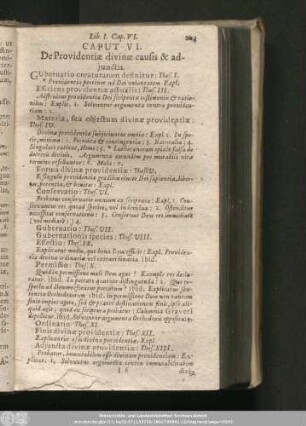 Lib. I. Cap. VI.
CAPUT VI.
De Providentiæ divinæ causis & ad-
junctis.
Gubernatio creaturarum definitur: Thes. I.
* Providentia pertinet ad Dei voluntatem. Expl.
Efficiens providentiæ actualis: Thes. III.
Asseritur providentia Dei scripturæ testimoniis & ratio-
nibus: Explic. 1. Solvuntur argumenta contra providen-
tiam: 2.
Materia, seu objectum divinæ providentiæ:
Thes. IV.
Divinæ providentiæ subjiciuntur omnia: Expl. 1. In spe-
cie, minima: 2. Fortuita & contingentia: 3. Naturalia: 4.
Singulares
decretis divinis. Argumenta
termino refelluntur: 6. Mala: 7.
Forma divinæ providentiæ: Thes. V.
E singulis providentiæ gradibus elucet Dei sapientia, liber-
tas, potentia, & bonitas: Expl.
Conservatio: Thes. VI.
Probatur conservatio omnium ex scriptura: Expl. 1. Con-
servantur res quoad species, vel individua: 2. Ostenditur
necessitas conservationis: 3. Conservat Deus vel immediate
vel mediate: 4.
Gubernatio: Thes. VII.
Gubernationis species: Thes. VIII.
Effectio: Thes. IX.
Explicatur modus, quo bona Deus efficit: Expl. Providen-
tia divina ordinaria vel extraordinaria. ibid.
Permissio: Thes. X.
Quid in permissione mali Deus agat? Exemplo res decla-
ratur. ibid. In peccato quatuor distinguenda: 2. Quo re-
spectu ad Deum referatur peccatum? ibid. Explicatur sen-
tentia Orthodoxorum. ibid. In permissione Deus non tantum
finis impiis agere, sed & præter destinationem finit, ipse ali-
quid agit, quod ex scriptura probatur: Calumnia Graweri
depellitur. ibid. Solvuntur argumenta Orthodoxis opposita: 4.
Ordinatio: Thes. XI.
Finis divinæ providentiæ: Thes. XII.
Explicantur usus divinæ providentiæ. Expl.
Adjuncta divinæ providentiæ: Thes. XIII.
Probatur, immutabilem esse divinam providentiam: Ex-
plicat. 1. Solvuntur argumenta contra immutabilitatem
divinæ